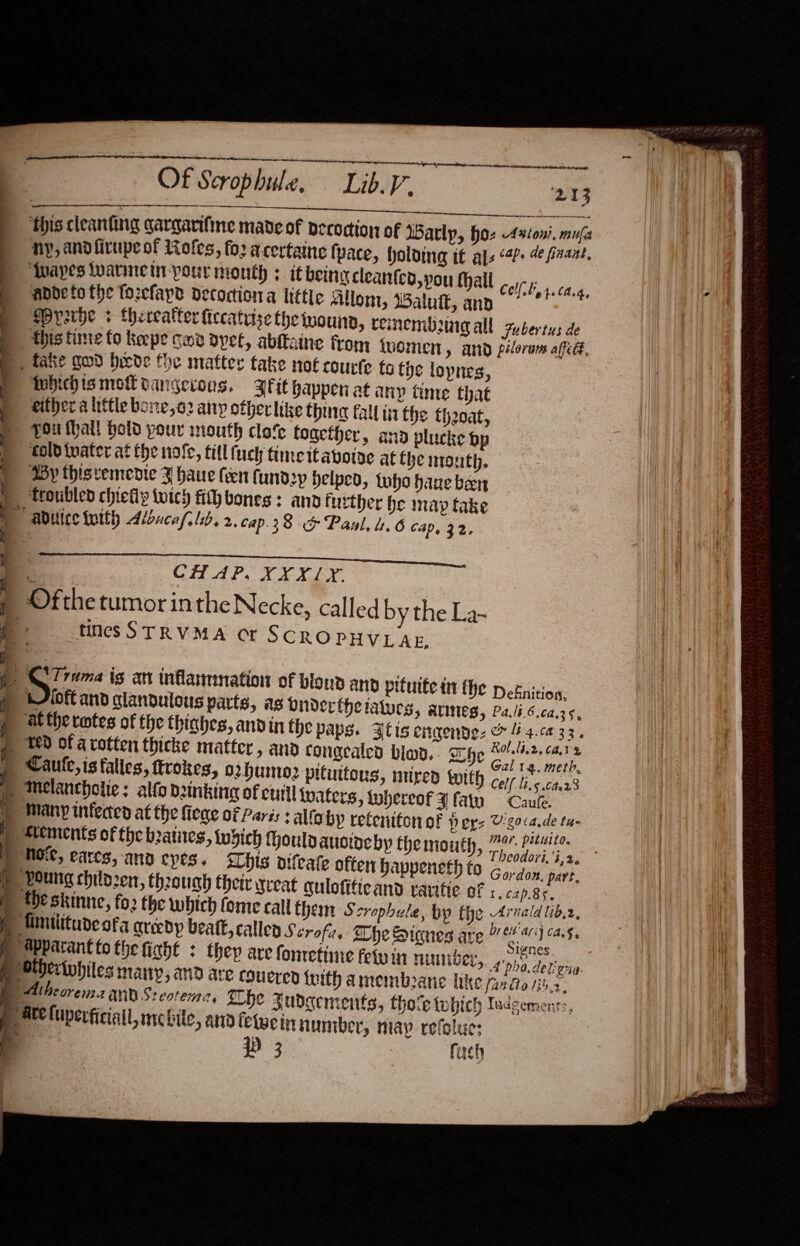 Of Scrophulæ. Lib. V. 213
this cleansing gargarisme made of decoction of Barly, ho-
ny, and sirupe of Roses, for a certaine space, holding it al-
wayes warme in your mouth : it being cleansed, you shall
adde to the foresayd decoction a little Allom, Balust, and
Myrthe : thereafter siccatrize the wound, remembring all
this time to keepe good dyet, abstaine from women, and
take good heede the matter take not course to the
which is most dangerous. If it happen at any time that
either a little bone, or any other like thing fall in the throat,
you shall hold your mouth close together, and plucke up
cold water at the nose, till such time it abide at the mouth.
By this remedie I have seen sundry helped, who have been
troubled chiefly with fish bones : and further he may take
advice with Albucas. lib. 2. cap. 38 & Paul. li. 6 cap. 32.
Antoni. musa
cap. de
Cels. li. ca. 4.
Jubertus de
affect.
CHAP. XXXIX.
Of the tumor in the Necke, called by the La-
tines STRVMA or SCROPHVLAE.
STruma is an inflammation of bloud and pituite in the
soft and glandulous parts, as under the iawes, armes,
at the rootes of the thighes, and in the paps. It is engende-
red of a rotten thicke matter, and congealed blood. The
Cause, is falles, strokes, or humor pituitous, mixed with
melancholie : also drinking of evill waters, whereof I saw
many infected at the siege of Paris : also by retention of ye ex-
crements of the braines, which should avoide by the mouth,
nose, eares, and eyes. This disease often happeneth to
young children, through their great gulositie and raritie of
the skinne, for the which some call them Scrophulæ, by the
similitude of a greedy beast, called Scrofa. The Signes are
apparant to the sight : they are sometime few in number,
otherwhiles many, and are covered with a membrane like
Atheorema and Steotema. The Iudgements, those which
are superficiall, mobile, and few in number, may resolve:
Definition.
Pa. li. 6. ca. 35.
& li 4. ca 33.
Gal 14. meth.
Cause.
Vigo
mor. pituito.
Theodori.
Gordon. part.
1. cap. 8.
Arnald lib. 2.
ca. 5.
Signes
Iudgements,
P 3 such